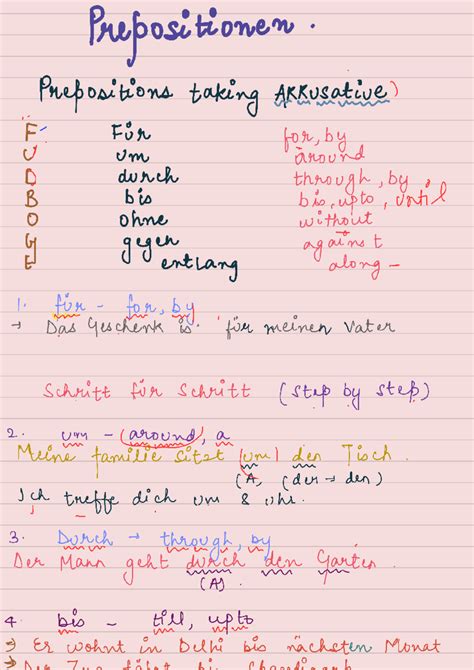 Prepositionen.
Prepositions taking AKKusative)
F Für for, by
U um around
D durch through, by
B bis bis, upto, until
O ohne without
G gegen against
E entlang along -
1. für - for, by
→ Das Geschenk is. für meinen Vater
Schritt für Schritt (step by step)
2. um - (around), a
Meine familie sitzt (um) den Tisch.
(A, (der → den)
Ich treffe dich um 8 uhr.
3. Durch → through, by
Der Mann geht durch den Garten.
(A).
4. bis - till, upto
→ Er wohnt in Delhi bis nächsten Monat
→ Der Zug fährt bis Chandigarh